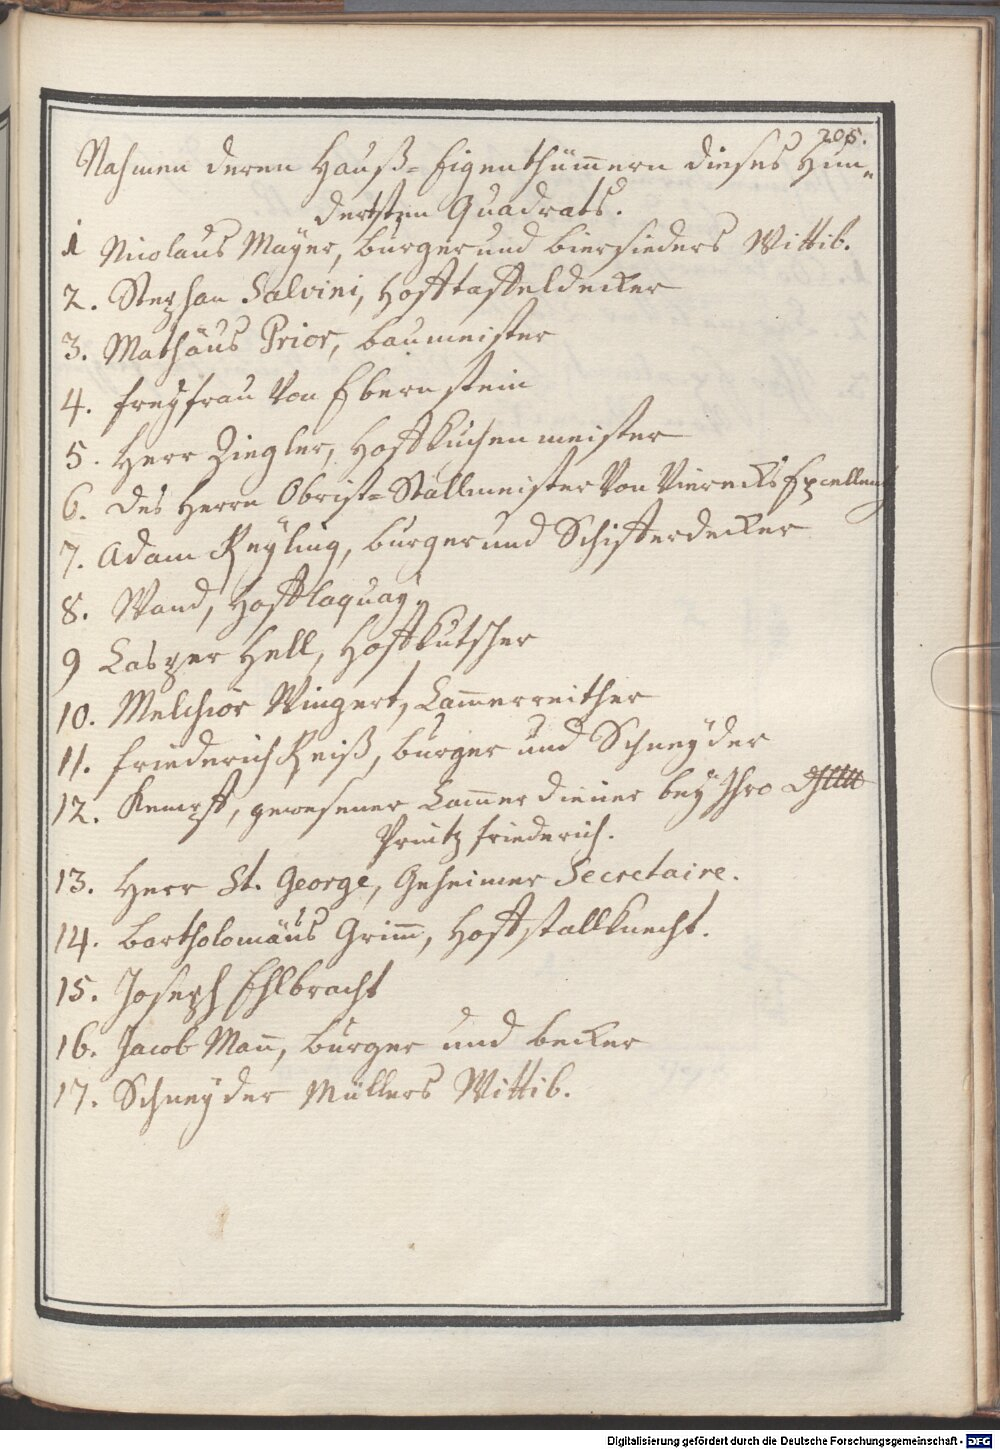 205.
Nahmen deren Hauß=Eigenthümern dieses Hun=
dertsten Quadrats.
1 Nicolaus Mayer, burger und biersieders Wittib.
2. Stephan Salvini, Hofftaffeldecker
3. Mathäus Prior, baumeister
4. Freyfrau Von Ebernstein
5. Herr Ziegler, Hoffküchenmeister
6. des Herrn Obrist=Stallmeister Von Vierecks Excellentz
7. Adam Reyling, burger und Schifferdecker
8. Wand, Hofflaquay,
9 Casper Hell, Hoffkutscher
10. Melchior Wingert, Cam̅erreither
11. Friederich Reiß, burger und Schneyder
12. Kempff, gewesener Cam̅erdiener bey Ihro
Printz Friederich.
13. Herr St. George, Geheimer Secretaire.
14. Bartholomäus Grim̅, Hoffstallknecht.
15. Joseph Ehlbracht
16. Jacob Man̅, burger und becker
17. Schneyder Müllers Wittib.
Digitalisierung gefördert durch die Deutsche Forschungsgemeinschaft - DFG